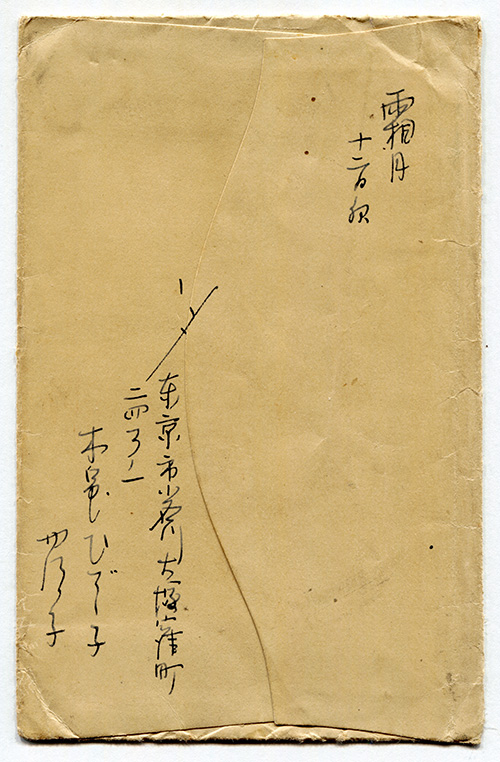 霜月
十二日夜
〆
东京市小石川大塚窪町
二四ノ一
ひで子